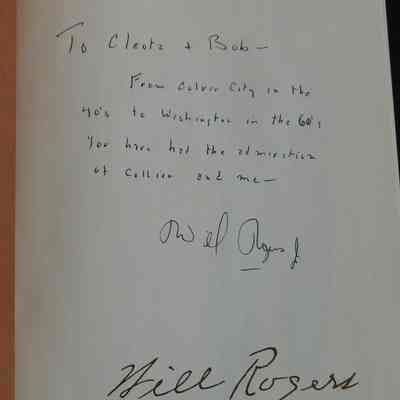 To Cleota & Bob—
From Culver City in the
40's to Washington in the 60's
You have had the admiration
of Collier and me—
Will Rogers Jr
Will Rogers